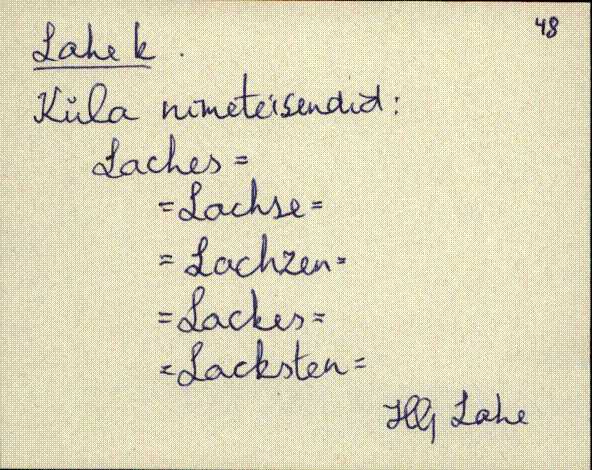 48
Lahe k.
Küla nimeteisendid:
Laches =
= Lachse =
= Lachzen =
= Lackes =
= Lacksten =
Lahe